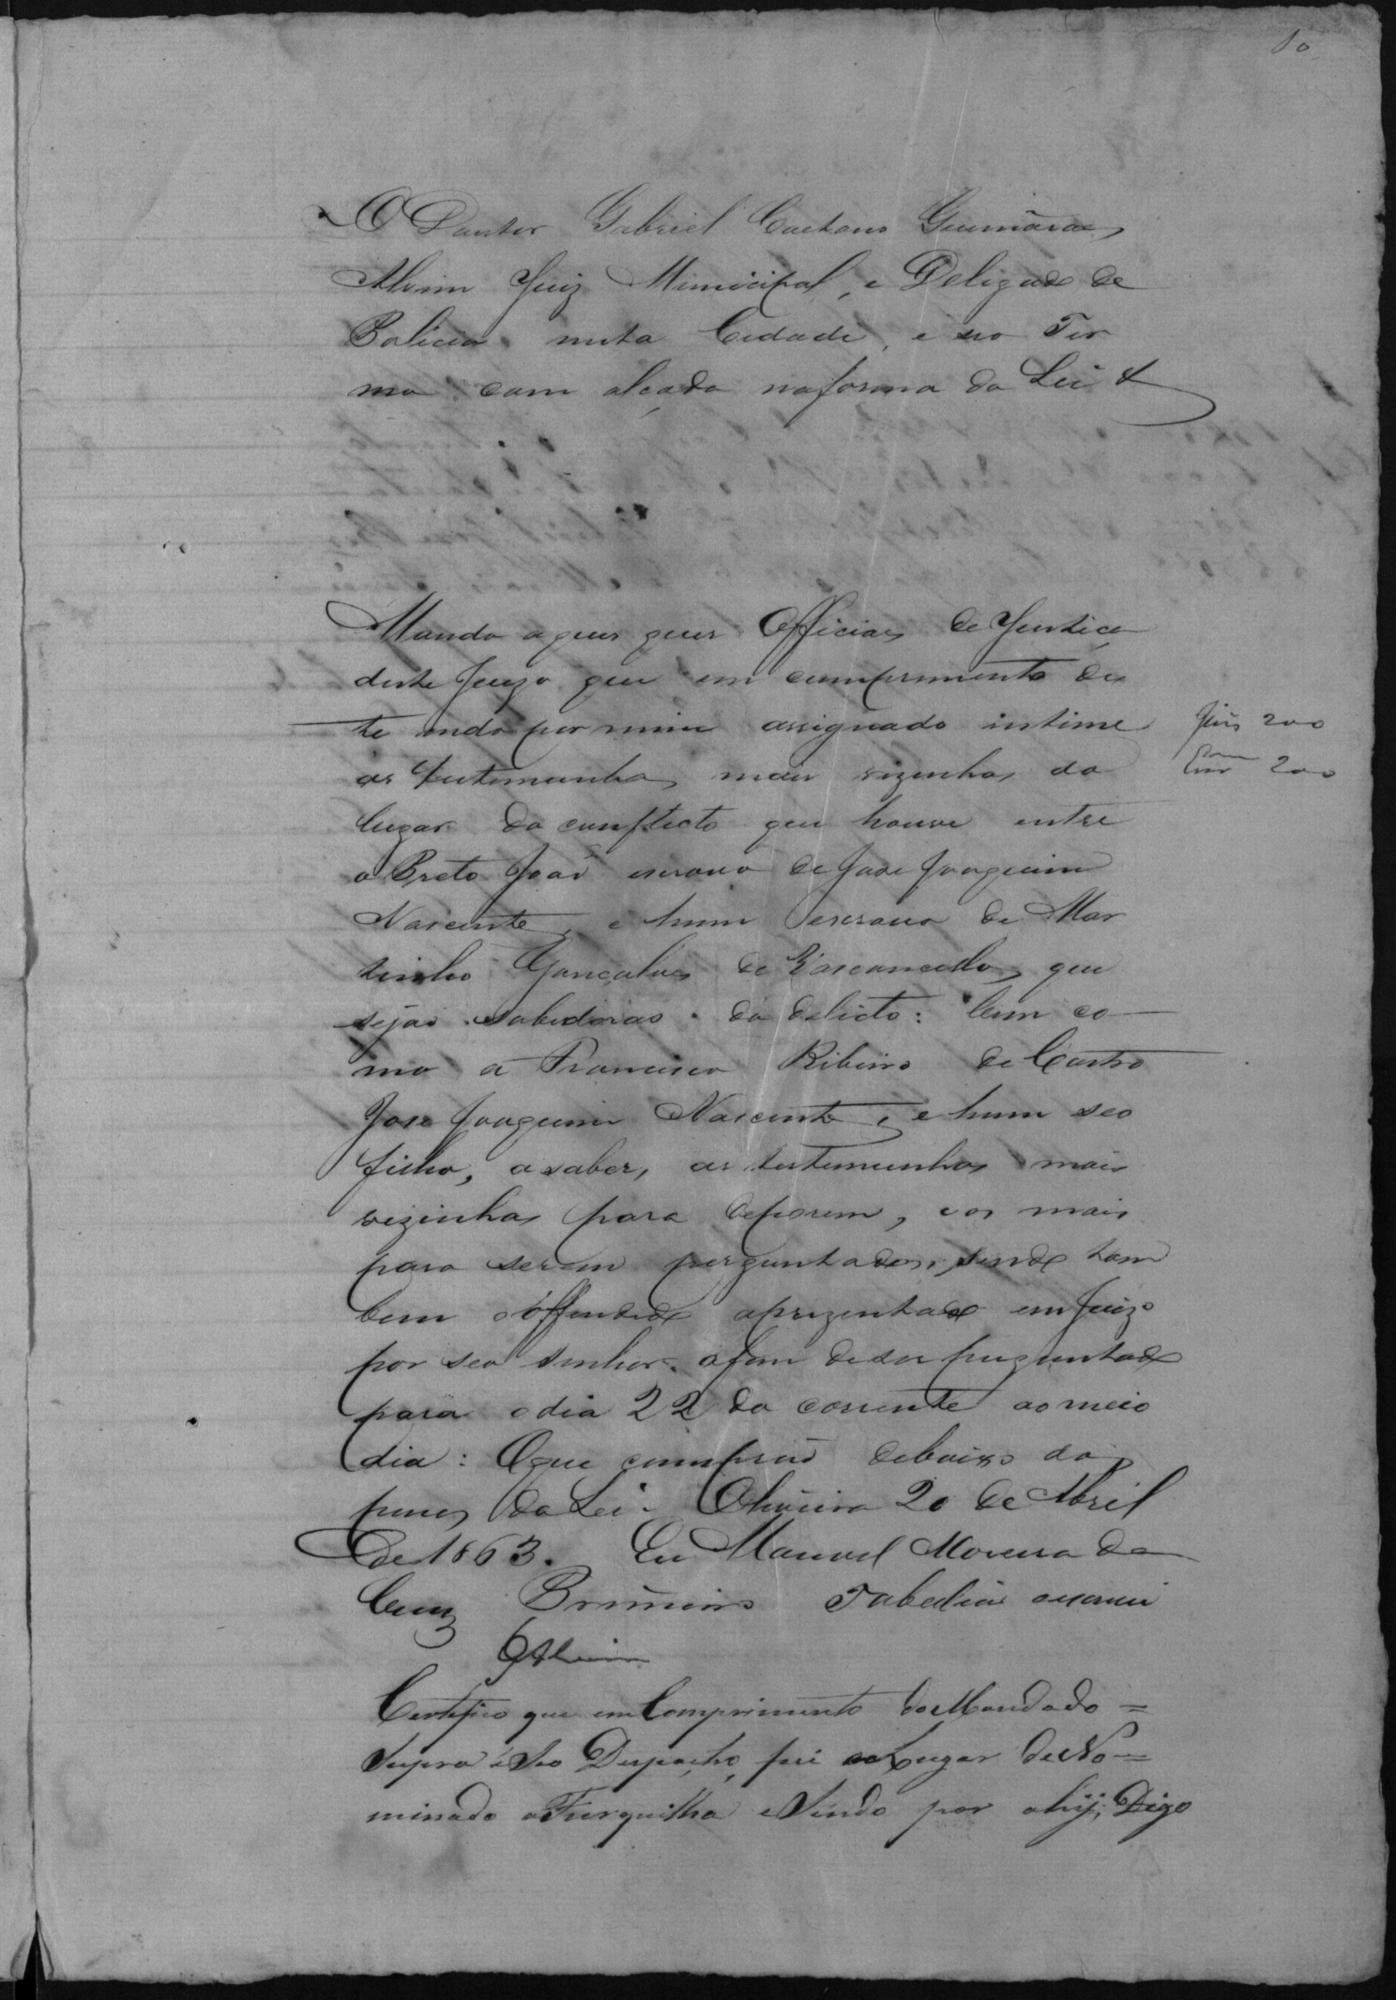 10
O Doutor Gabriel Caetano Guimãraes
Alvim Juiz Municipal, e Deligado de
Policia nesta Cidade, e seo Ter
mo com alçada na forma da Lei &
Mando a quus quer Officiaes de Justiça
deste Juizo que em cumprimento des
te indo por mim assignado intime
as testemunhas mais vizinhas do
lugar do conflicto que houve entre
o Preto João escravo de Jose Joaquim
Nascente, e hum escravo de Mar
tinho Gonçalves de Vasconcellos, que
sejão sabedoras do delicto: bem co
mo a Francisco Ribeiro de Castro
Jose Joaquim Nascente, e hum seo
filho, a saber, as testemunhas mais
vizinhas para deporem, e os mais
para serem perguntados, sendo tam
bem o offendido aprezentado em Juizo
por seo senhor afim de ser perguntado
para o dia 22 do corrente ao meio
dia: O que cumprão debaixo das
penas da Lei. Oliveira 20 de Abril
de 1863. Eu Manoel Moreira da
Cruz Tabelião escrevi
GAlvim
Juiz 200
200
Certifico que em Comprimento do Mandado =
Supra e Seo Despacho, fui ao Lugar deNo=
minado a Furquilha e Sendo por ahij, Digo